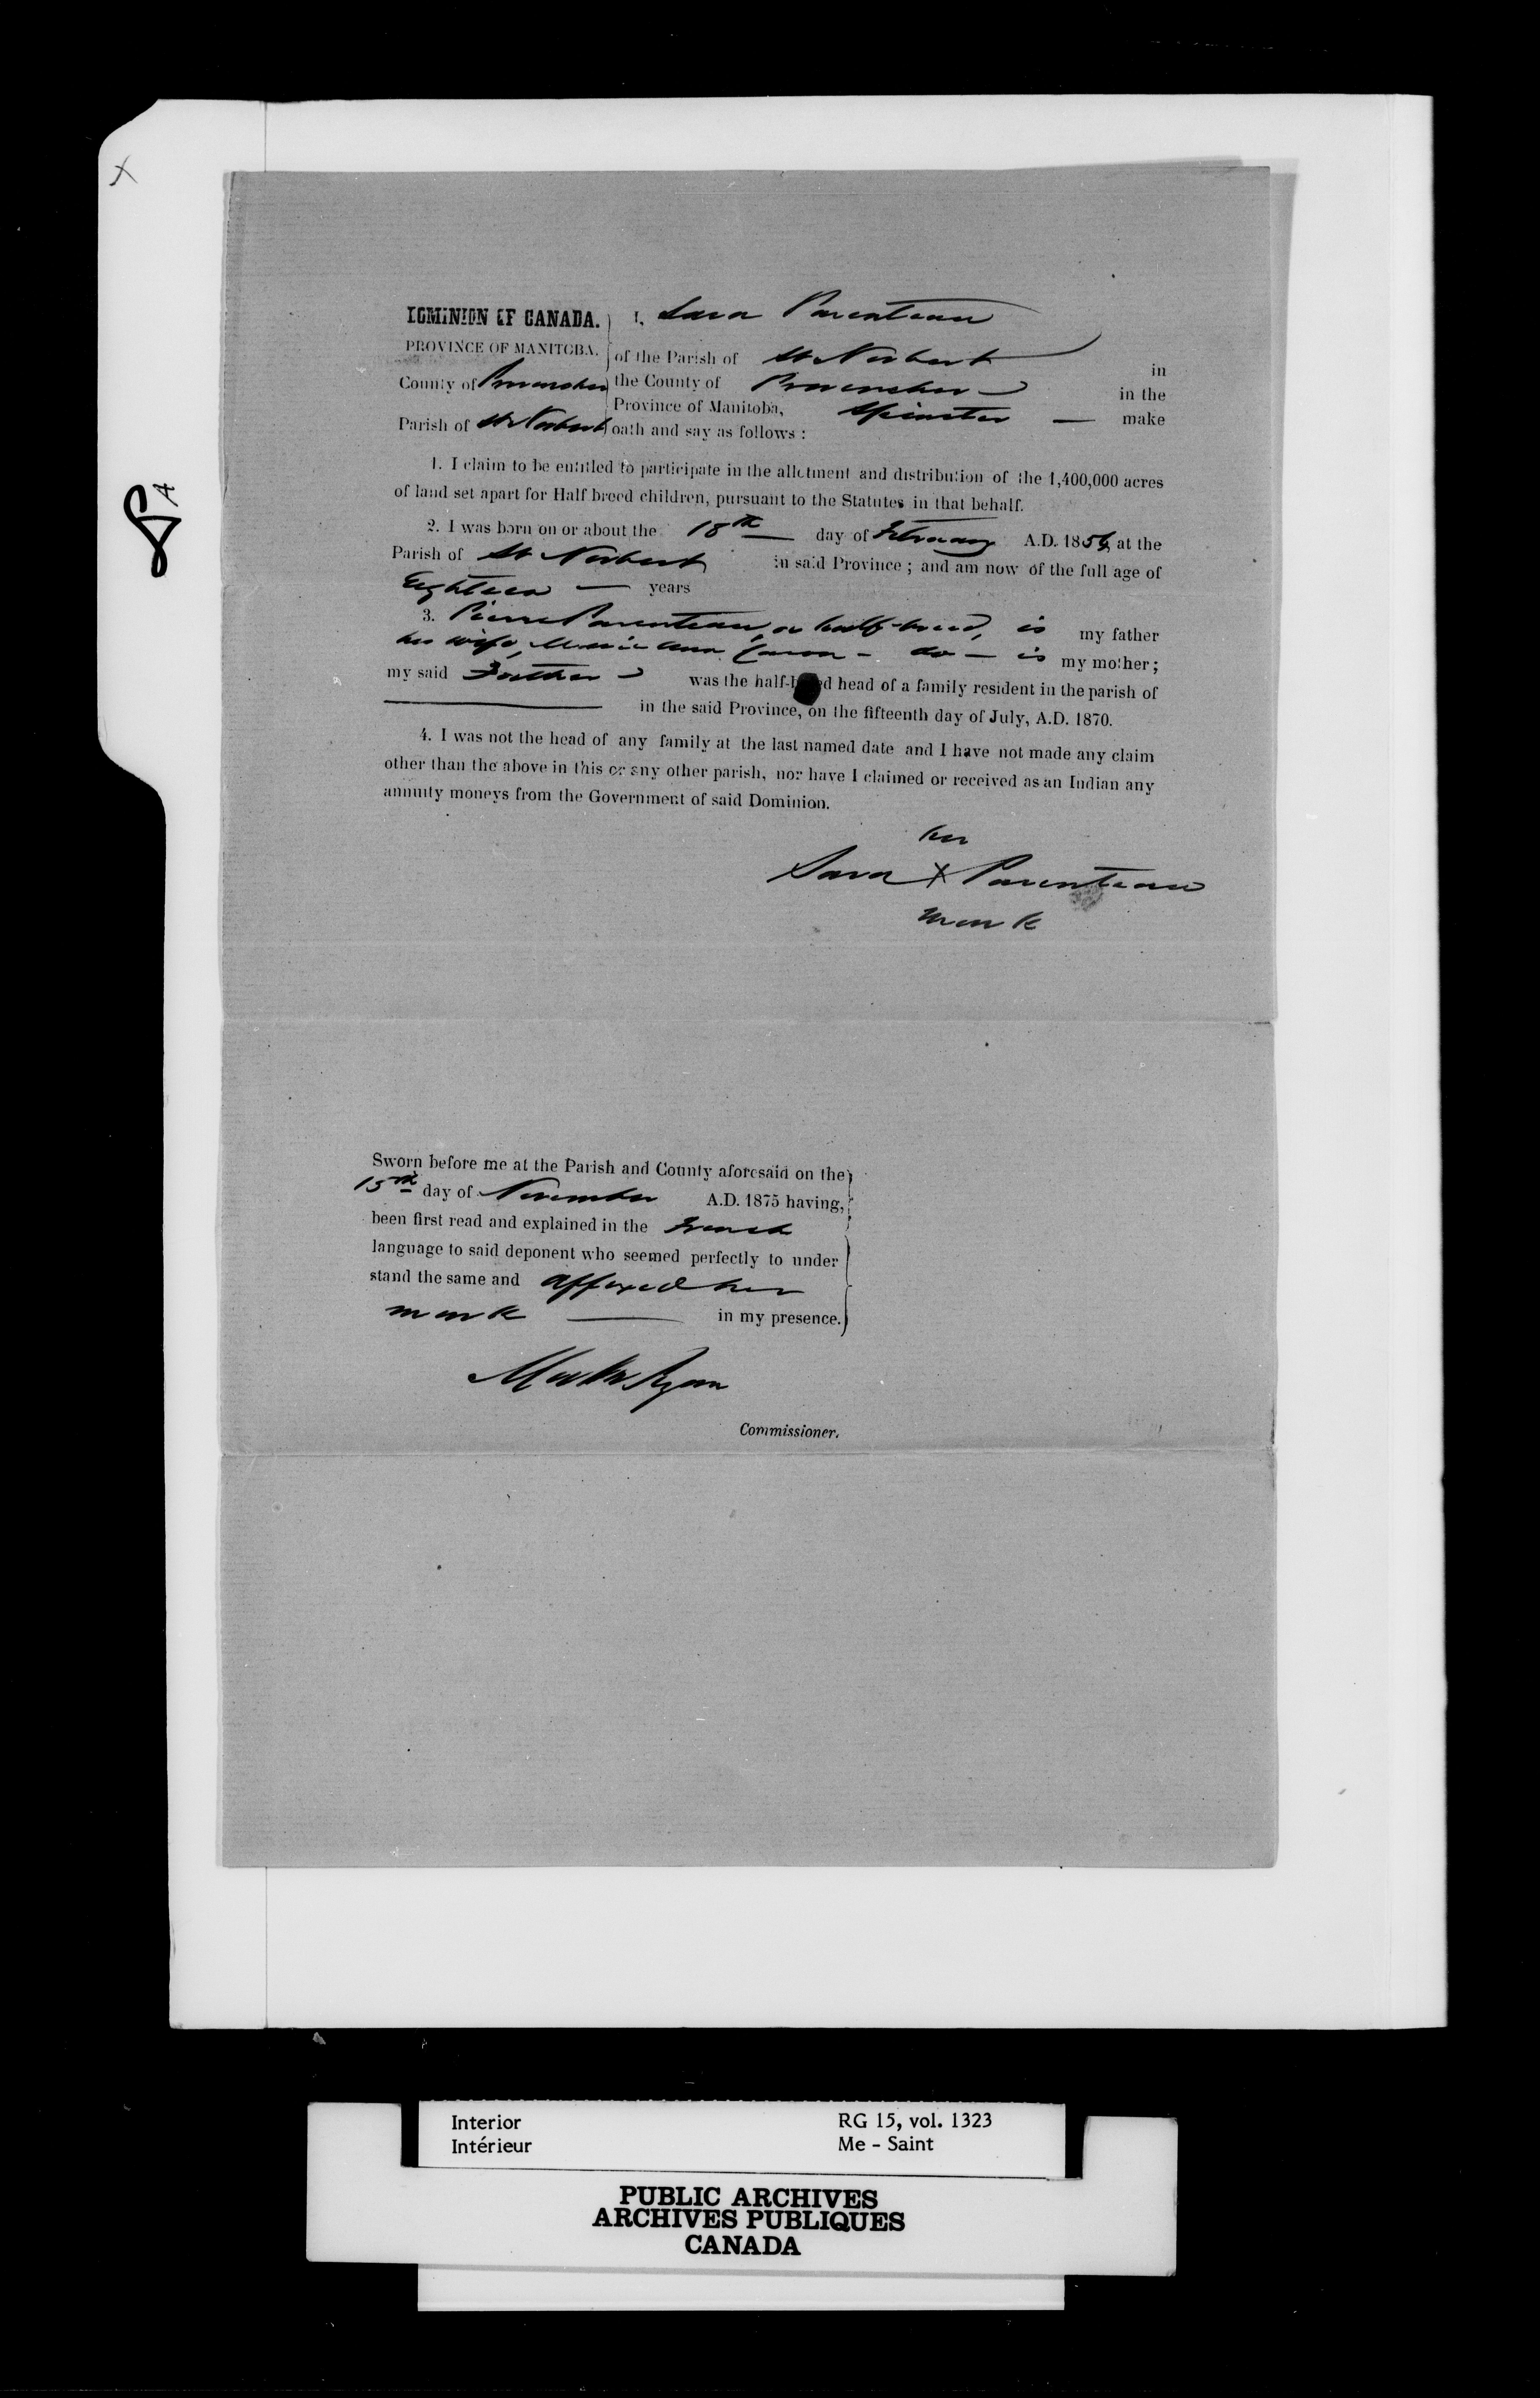 X
8A
DOMINION OF CANADA. I, Sara Parenteau
PROVINCE OF MANITOBA. of the Parish of St Norbert in
County of Provencher the County of Provencher in the
Province of Manitoba, Spinster — make
Parish of St Norbert oath and say as follows :
1. I claim to be entitled to participate in the allotment and distribution of the 1,400,000 acres
of land set apart for Half breed children, pursuant to the Statutes in that behalf.
2. I was born on or about the 18th day of February A.D. 185 at the
Parish of St Norbert in said Province ; and am now of the full age of
Eighteen — years
3. Pierre Parenteau, a half-breed, is my father
his wife, Marie Ann Caron - do - is my mother ;
my said Father was the half-breed head of a family resident in the parish of
in the said Province, on the fifteenth day of July, A.D. 1870.
4. I was not the head of any family at the last named date and I have not made any claim
other than the above in this or any other parish, nor have I claimed or received as an Indian any
annuity moneys from the Government of said Dominion.
her
Sara X Parenteau
mark
Sworn before me at the Parish and County aforesaid on the
15th day of November A.D. 1875 having,
been first read and explained in the French
language to said deponent who seemed perfectly to under
stand the same and affixed her
mark — in my presence.
Ryan
Commissioner.
Interior RG 15, vol. 1323
Intérieur Me - Saint
PUBLIC ARCHIVES
ARCHIVES PUBLIQUES
CANADA